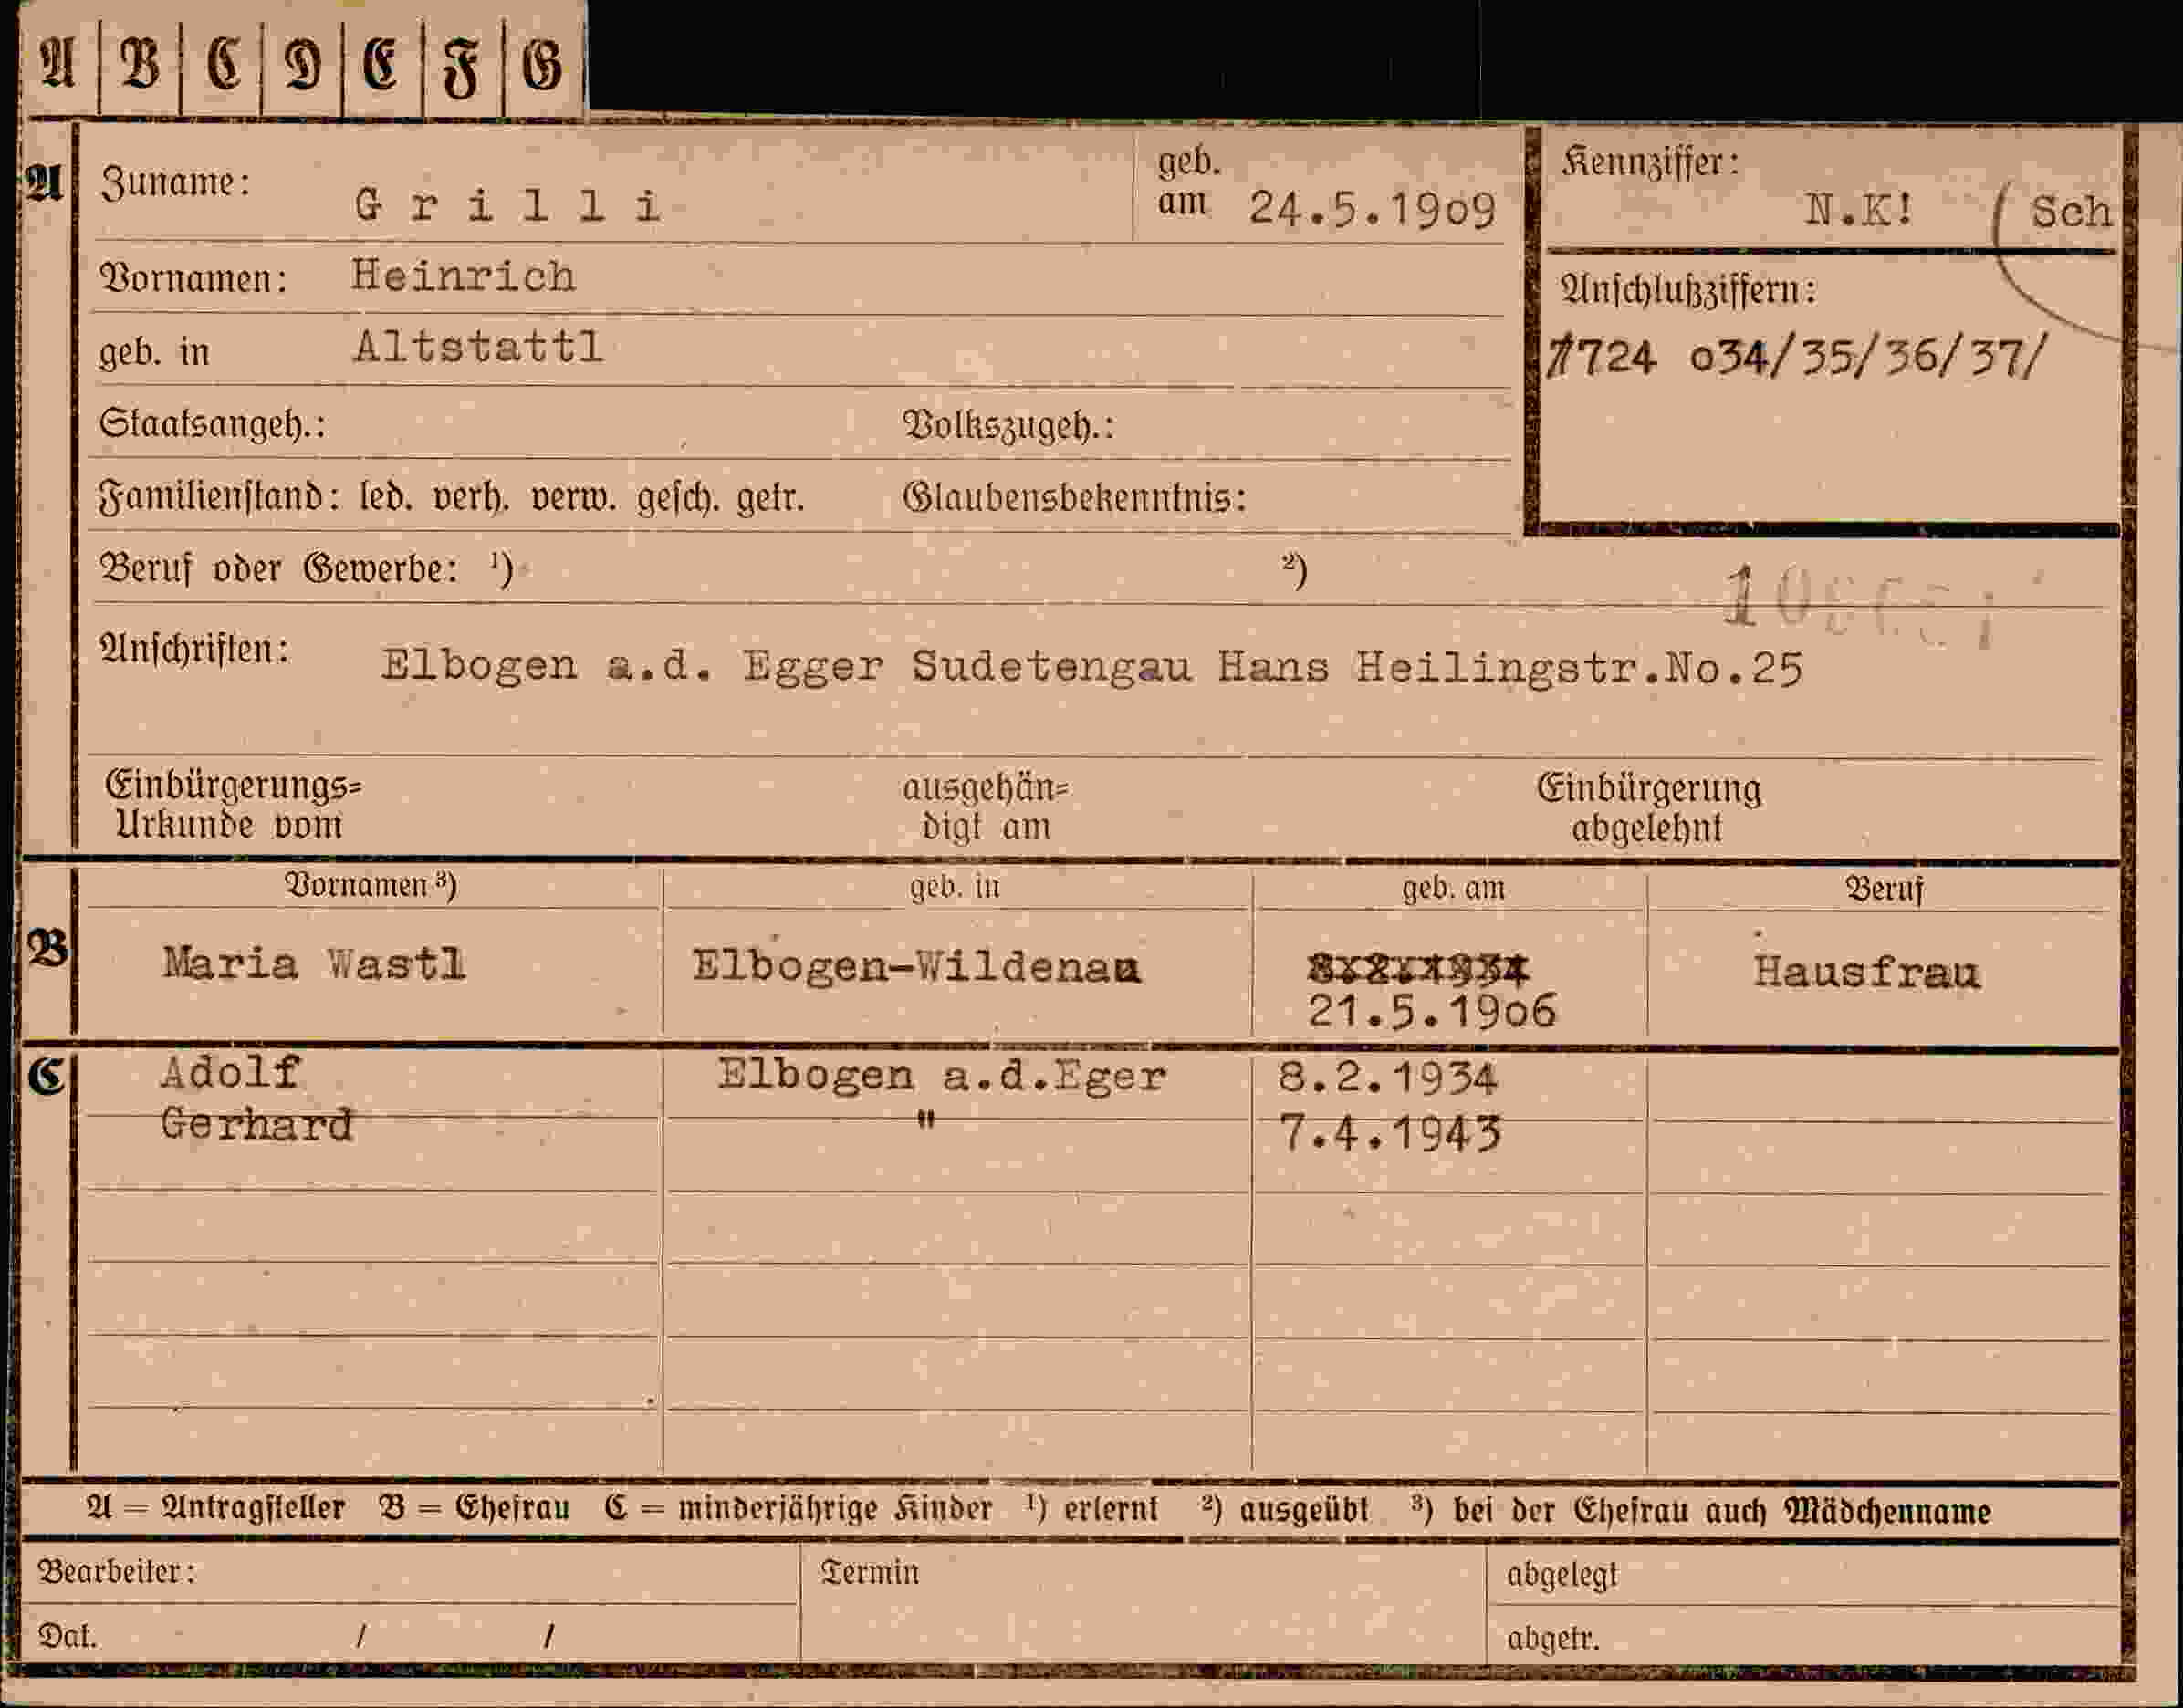 A B C D E F G
A Zuname: Grilli geb. am 24.5.1909 Kennziffer: N.K! ( Sch
Vornamen: Heinrich Anschlußziffern:
geb. in Altstattl 1724 034/35/36/37/
Staatsangeh.: Volkszugeh.:
Familienstand: led. verh. verw. gesch. getr. Glaubensbekenntnis:
Beruf oder Gewerbe: ¹) ²)
Anschriften: Elbogen a.d. Egger Sudetengau Hans Heilingstr.No.25
Einbürgerungs= ausgehän= Einbürgerung
Urkunde vom digt am abgelehnt
Vornamen ³) geb. in geb. am Beruf
B Maria Wastl Elbogen-Wildenau 8.2.1934 Hausfrau
21.5.1906
C Adolf Elbogen a.d.Eger 8.2.1934
Gerhard " 7.4.1943
A = Antragsteller B = Ehefrau C = minderjährige Kinder ¹) erlernt ²) ausgeübt ³) bei der Ehefrau auch Mädchenname
Bearbeiter: Termin abgelegt
Dat. / / abgetr.